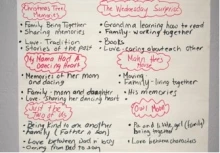 Christmas Tree
Memories
• Family Being Together
• Sharing memories
• Love Traditions
• Stories of the past
The Wednesday Surprise
• Grandma learning how to read
• Family working together
• Books
• Love caring about each other
My Mama Had A
Dancing Heart
• Memories of her mom
and dancing
• Family - mom and daughter
• Love - Sharing her dancing heart
House
• Moving
• Family - living together
• His memories
Just the
Two of Us
• Being kind to one another
• Family (Father & Son)
• Love between dad & boy
Owl Moon
• Pa and
together)
• Love between characters